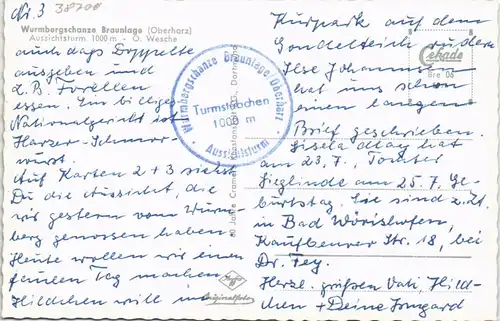 Nr. 3
38700
Wurmbergschanze Braunlage (Oberharz)
Aussichtsturm. 1000 m - O. Wesche
auch dags Doppelte
ausgeben und
z.B. Forellen
essen. Ein billiges
Nationalgericht ist
Harzer-Schmor-
wurst.
Auf Karten 2 + 3 siehst
Du die Aussicht, die
wir gestern vom Wurm-
berg genossen haben.
Heute wollen wir einen
faulen Tag machen,
Hildchen will im
Wurmbergschanze Braunlage/Oberharz
Turmstübchen
1000 m
Aussichtsturm
60 Jahre Cramers Kunstanstalt KG., Dortmund
Originalfoto
Cekade
Bre 06
Kurpark auf dem
Gondelteich rudern.
Ilse Johannsen
hat uns schon
einen langen
Brief geschrieben.
Gisela May hat
am 23.7., Tochter
Sieglinde am 25.7. Ge-
burtstag. Sie sind z.Zt.
in Bad Wörishofen,
Kaufbeurer Str. 18, bei
Dr. Fey.
Herzl. grüßen Vati, Hild-
chen + Deine Irmgard